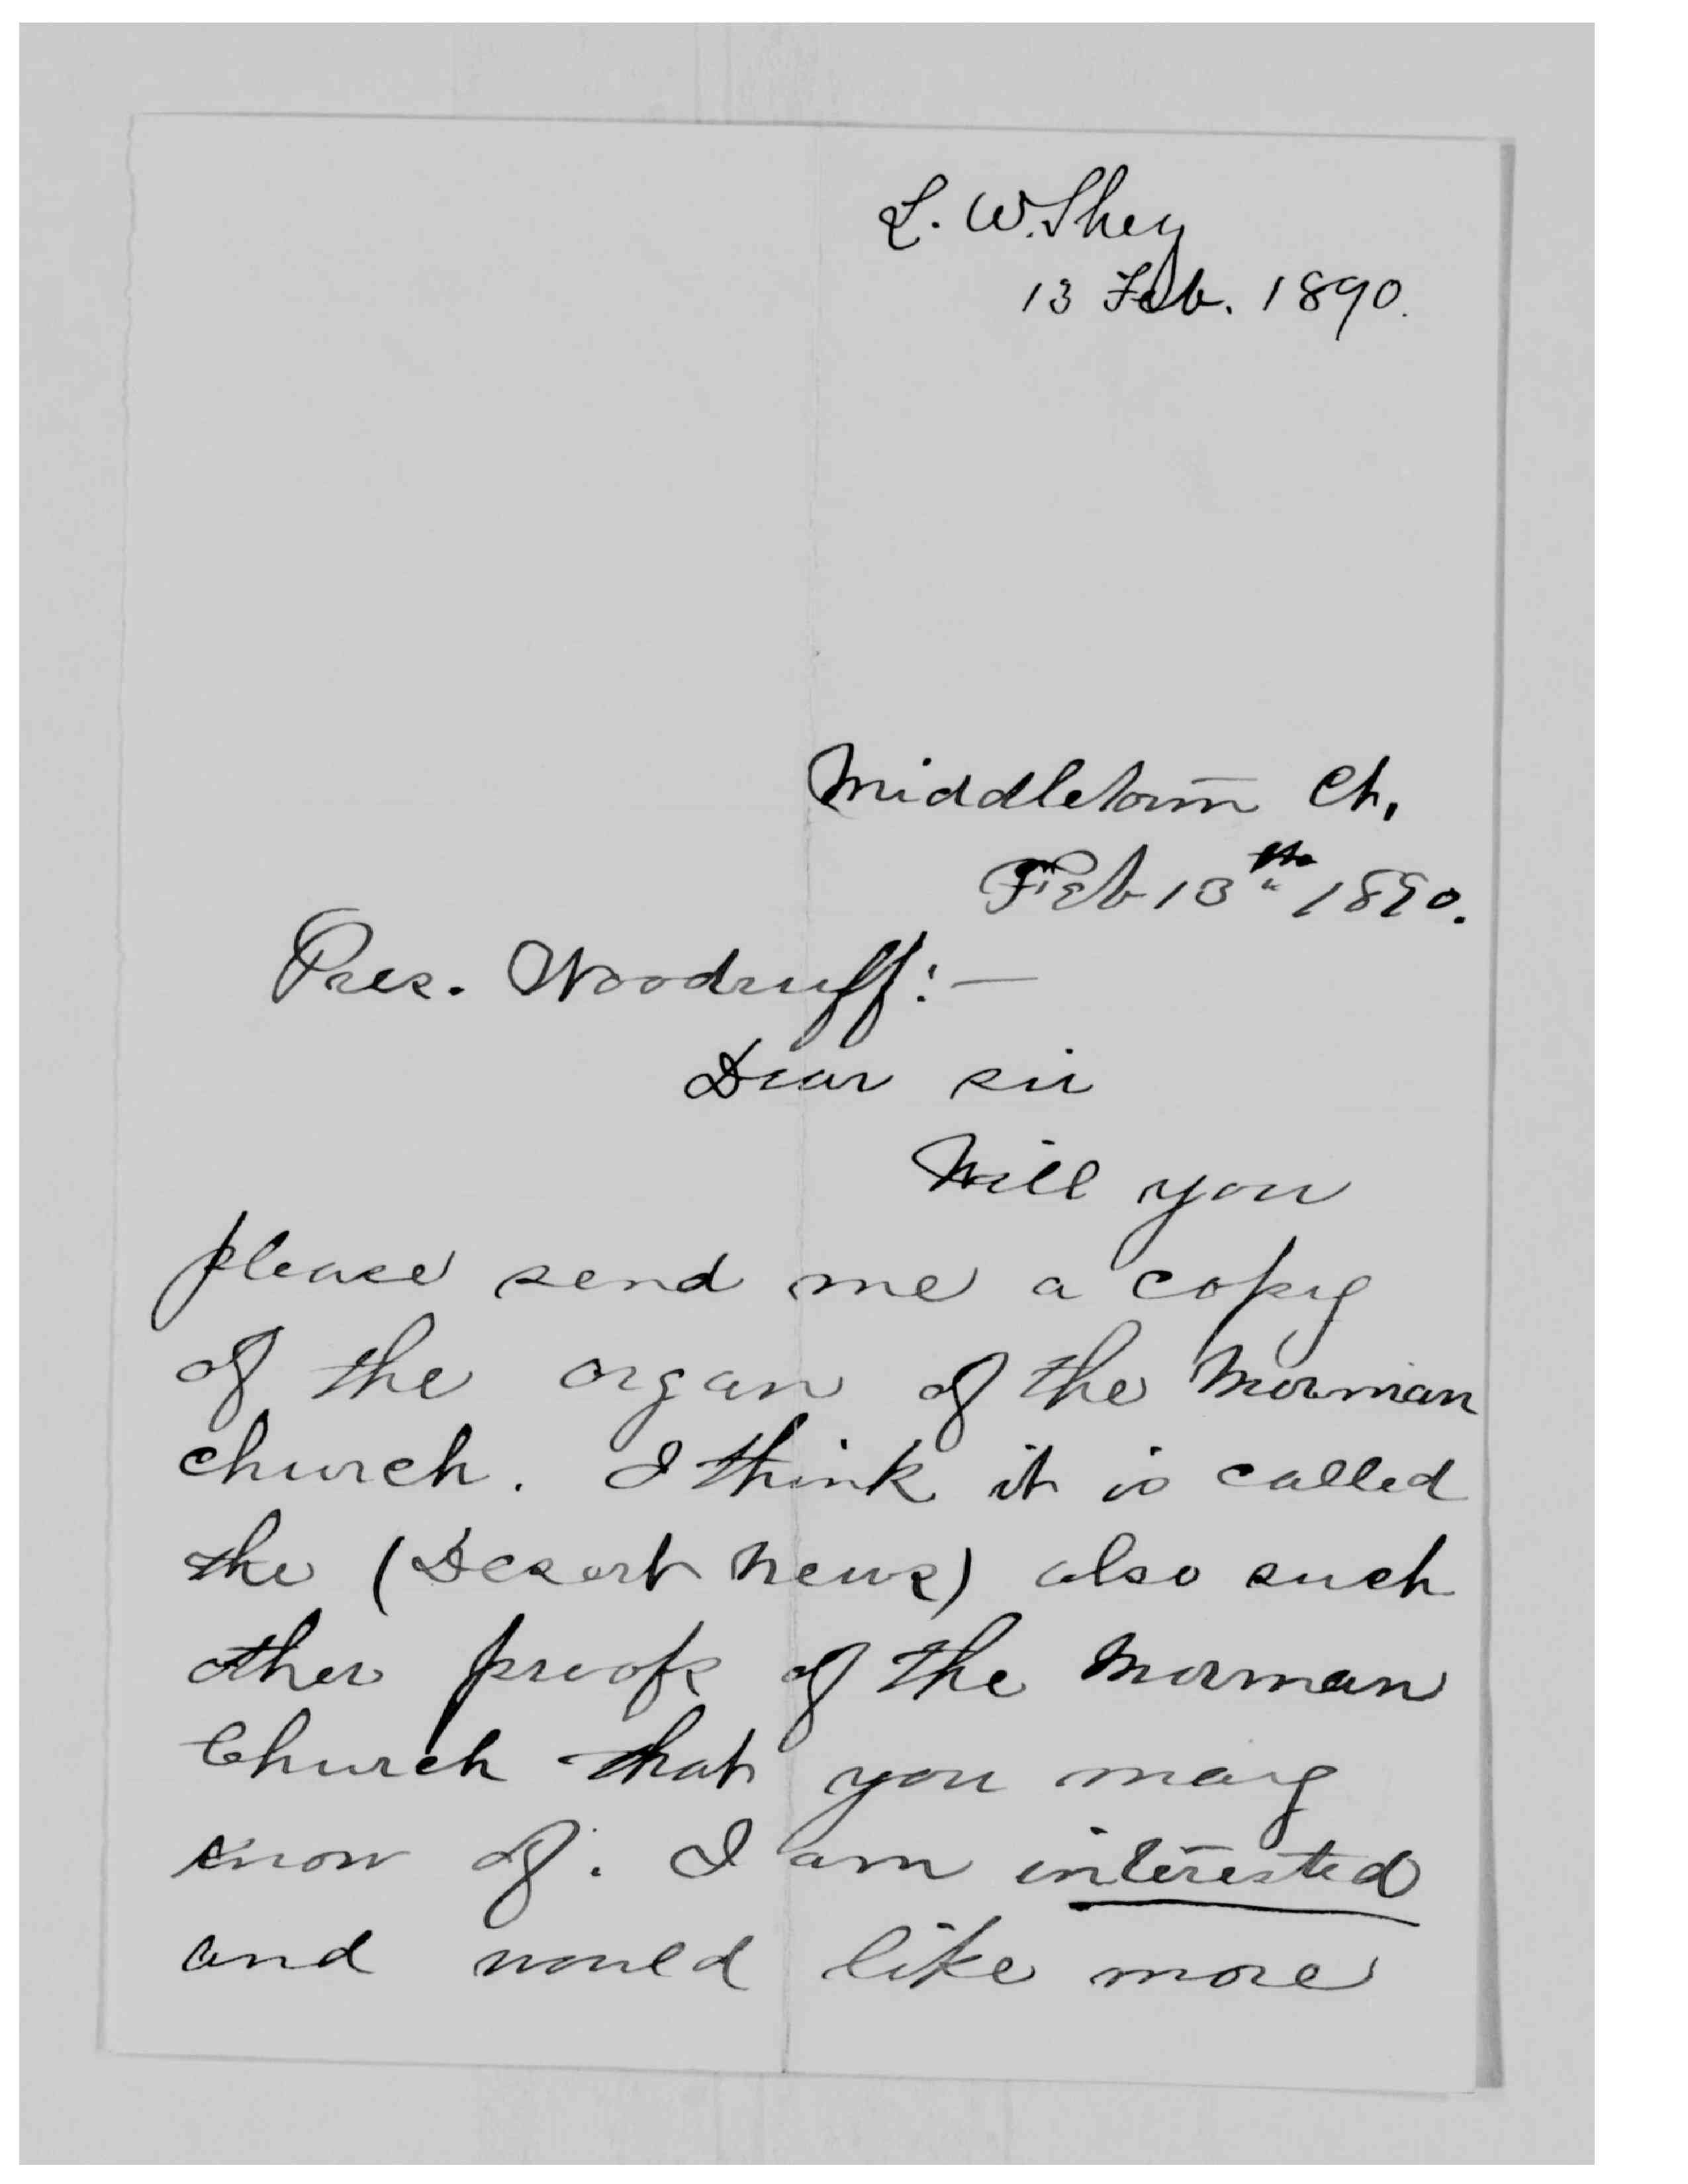 L. W. Shey
13 Feb. 1890.
Middletown Ct,
Feb 13th 1890.
Pres. Woodruff:—
Dear sir
Will you
please send me a copy
of the organ of the Morman
church. I think it is called
the (Desert News) also such
other proofs of the Morman
Church that you may
know of. I am interested
and would like more